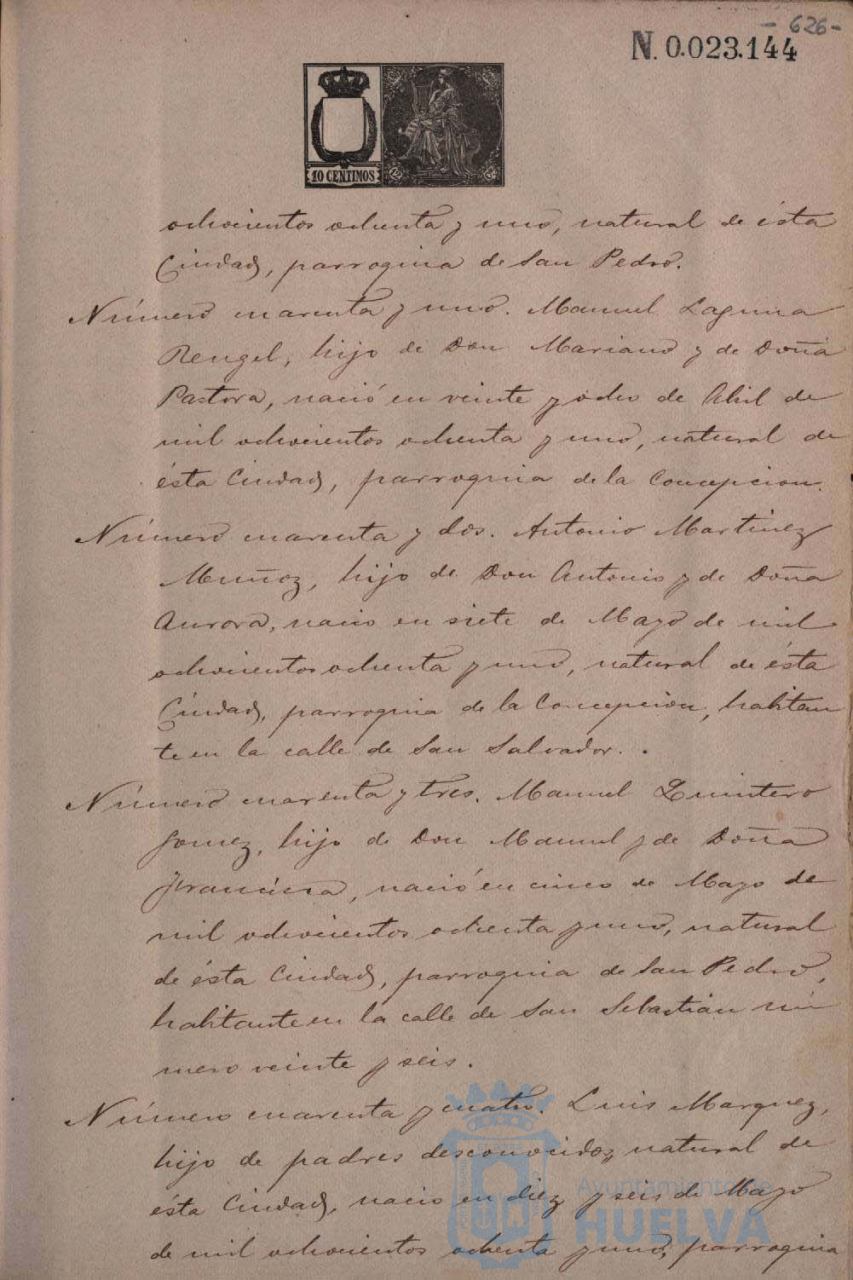 - 626-
N. 0.023.144
10 CENTIMOS
ochocientos ochenta y uno, natural de ésta
Ciudad, parroquia de San Pedro.
Número cuarenta y uno. Manuel Laguna
Rengel, hijo de Don Mariano y de Doña
Pastora, nació en veinte y ocho de Abril de
mil ochocientos ochenta y uno, natural de
ésta Ciudad, parroquia de la Concepcion.
Número cuarenta y dos. Antonio Martinez
Muñoz, hijo de Don Antonio y de Doña
Aurora, nació en siete de Mayo de mil
ochocientos ochenta y uno, natural de ésta
Ciudad, parroquia de la Concepcion, habitan
te en la calle de San Salvador.
Número cuarenta y tres. Manuel Quintero
Gomez, hijo de Don Manuel y de Doña
Francisca, nació en cinco de Mayo de
mil ochocientos ochenta y uno, natural
de ésta Ciudad, parroquia de San Pedro,
habitante en la calle de San Sebastián nú
mero veinte y seis.
Número cuarenta y cuatro. Luis Marquez,
hijo de padres desconocidos, natural de
ésta Ciudad, nació en diez y seis de Mayo
de mil ochocientos ochenta y uno, parroquia
Ayuntamiento de
HUELVA